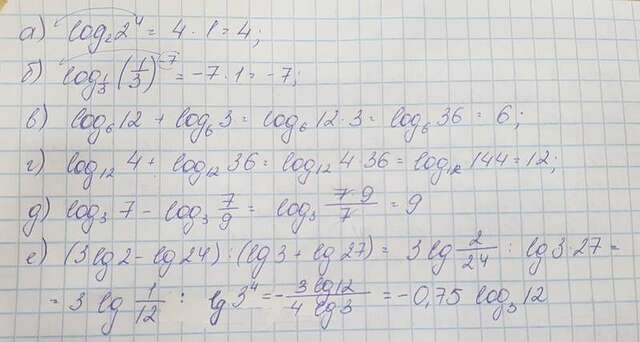 а) log₂2⁴ = 4 · 1 = 4;
б) log₁/₃(1/3)⁻⁷ = -7 · 1 = -7;
в) log₆12 + log₆3 = log₆12·3 = log₆36 = 6;
г) log₁₂4 + log₁₂36 = log₁₂4·36 = log₁₂144 = 12;
д) log₃7 - log₃7/9 = log₃(7·9)/7 = 9
е) (3lg2 - lg24) : (lg3 + lg27) = 3lg2/24 : lg3·27 =
= 3lg1/12 : lg3⁴ = -3lg12/4lg3 = -0,75 log₃12